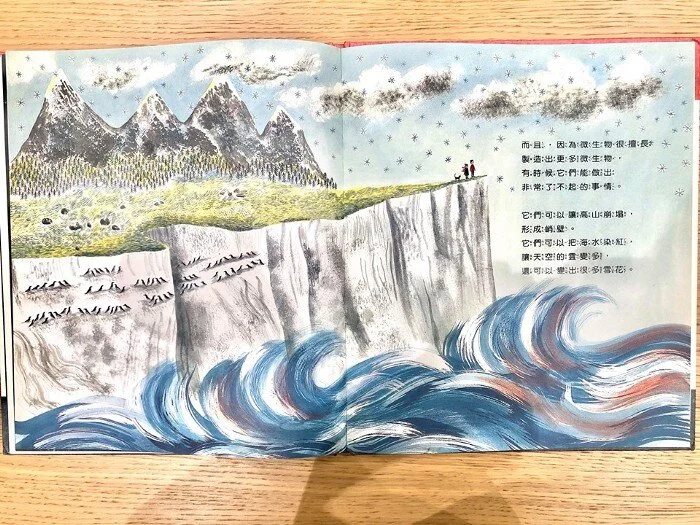 而且，因為微生物很擅長
製造出更多微生物，
有時候它們能做出
非常了不起的事情。
它們可以讓高山崩塌，
形成峭壁。
它們可以把海水染紅，
讓天空的雲變多，
還可以變出很多雪花。